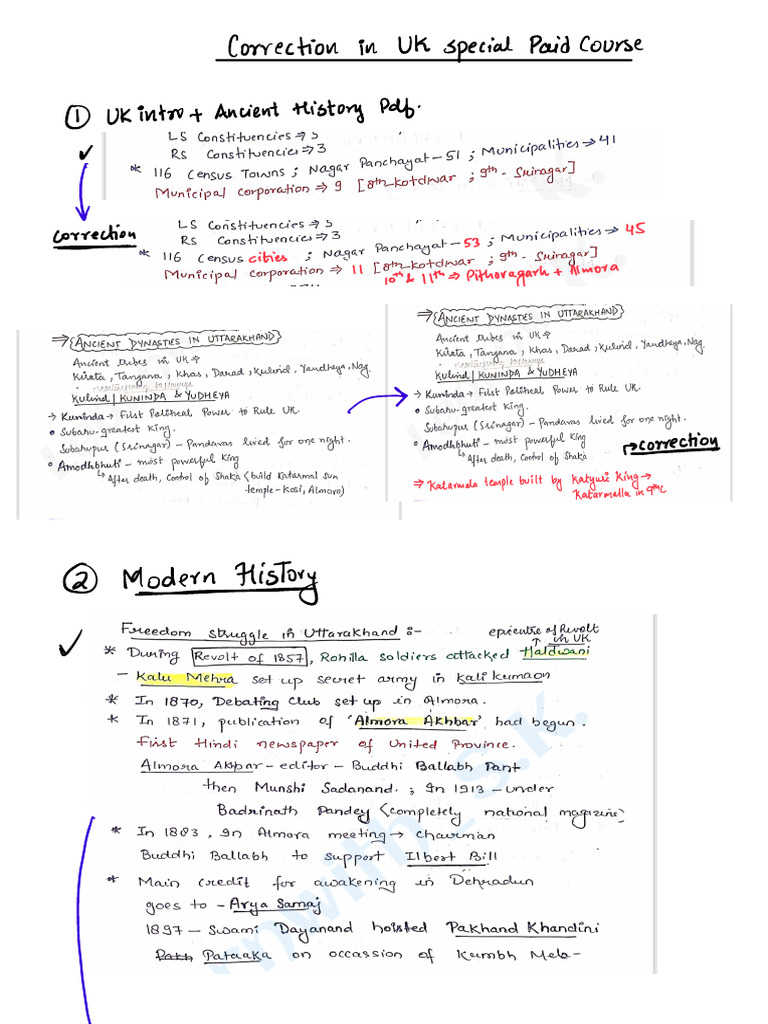 Correction in UK special Paid Course
① UK intro + Ancient History Pdf.
LS Constituencies ⇒ 5
RS Constituencies ⇒ 3
* 116 Census Towns ; Nagar Panchayat - 51 ; Municipalities → 41
Municipal Corporation ⇒ 9 [8th - Kotdwar ; 9th - Srinagar]
Correction
LS Constituencies ⇒ 5
RS Constituencies ⇒ 3
* 116 Census cities ; Nagar Panchayat - 53 ; Municipalities → 45
Municipal Corporation ⇒ 11 [8th - Kotdwar ; 9th - Srinagar]
10th & 11th ⇒ Pithoragarh + Almora
⇒ {ANCIENT DYNASTIES IN UTTARAKHAND}
Ancient tribes in UK ⇒
Kirata, Tangana, Khas, Darad, Kulind, Yaudheya, Nag.
Kulind / KUNINDA & YUDHEYA
→ Kuninda → First Political Power to Rule UK.
• Subahu - greatest King.
Subahupur (Srinagar) - Pandavas lived for one night.
• Amodhbhuti - most powerful King
↳ After death, Control of Shaka (build Katarmal Sun
temple - Kosi, Almora)
⇒ {ANCIENT DYNASTIES IN UTTARAKHAND}
Ancient tribes in UK ⇒
Kirata, Tangana, Khas, Darad, Kulind, Yaudheya, Nag.
Kulind / KUNINDA & YUDHEYA
→ Kuninda → First Political Power to Rule UK.
• Subahu - greatest King.
Subahupur (Srinagar) - Pandavas lived for one night.
• Amodhbhuti - most powerful King
↳ After death, Control of Shaka
correction
⇒ Katarmala temple built by Katyuri King →
Katarmalla in 9th C
② Modern History
Freedom struggle in Uttarakhand :-
epicentre of Revolt
in UK
* During Revolt of 1857, Rohilla soldiers attacked Haldwani
- Kalu Mehra set up secret army in Kali Kumaon
* In 1870, Debating Club set up in Almora.
* In 1871, publication of 'Almora Akhbar' had begun.
First Hindi newspaper of United Province.
Almora Akbar - editor - Buddhi Ballabh Pant
then Munshi Sadanand. ; In 1913 - under
Badrinath Pandey (completely national magizine)
* In 1883, In Almora meeting → Chairman
Buddhi Ballabh to support Ilbert Bill
* Main credit for awakening in Dehradun
goes to - Arya Samaj
1897 - Swami Dayanand hoisted Pakhand Khandini
Pakh Pataaka on occassion of Kumbh Mela -